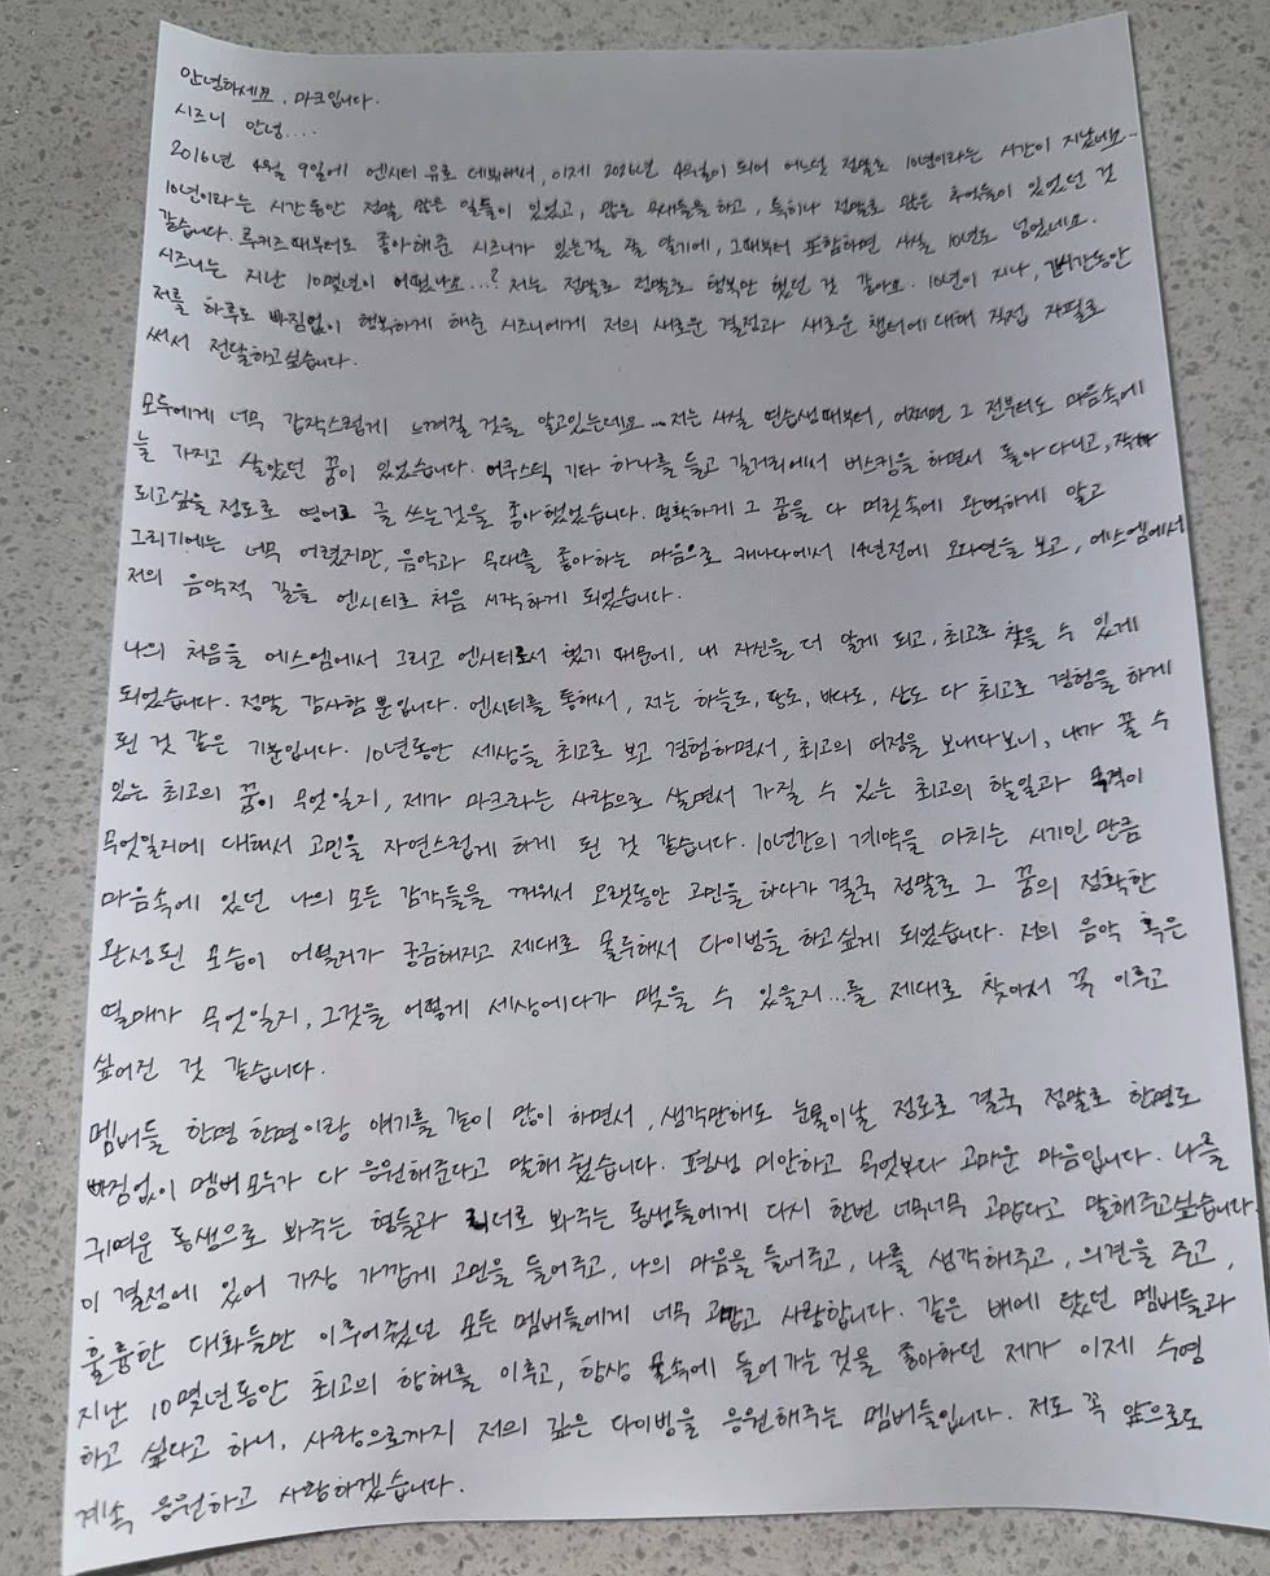 안녕하세요. 마크입니다.
시즈니 안녕....
2016년 4월 9일에 엔시티 유로 데뷔해서, 이제 2026년 4월이 되어 어느덧 정말로 10년이라는 시간이 지났네요..
10년이라는 시간동안 정말 많은 일들이 있었고, 많은 무대들을 하고, 특히나 정말로 많은 추억들이 있었던 것
같습니다. 루키즈때부터도 좋아해준 시즈니가 있는걸 잘 알기에, 그때부터 포함하면 사실 10년도 넘었네요.
시즈니는 지난 10몇년이 어땠나요...? 저는 정말로 정말로 행복만 했던 것 같아요. 10년이 지나, 긴시간동안
저를 하루도 빠짐없이 행복하게 해준 시즈니에게 저의 새로운 결정과 새로운 챕터에 대해 직접 자필로
써서 전달하고싶습니다.
모두에게 너무 갑작스럽게 느껴질 것을 알고있는데요... 저는 사실 연습생때부터, 어쩌면 그 전부터도 마음속에
늘 가지고 살았던 꿈이 있었습니다. 어쿠스틱 기타 하나를 들고 길거리에서 버스킹을 하면서 돌아다니고, 작가
되고싶을 정도로 영어로 글 쓰는것을 좋아했었습니다. 명확하게 그 꿈을 다 머릿속에 완벽하게 알고
그리기에는 너무 어렸지만, 음악과 무대를 좋아하는 마음으로 캐나다에서 14년전에 오디션을 보고, 에스엠에서
저의 음악적 길을 엔시티로 처음 시작하게 되었습니다.
나의 처음을 에스엠에서 그리고 엔시티로서 했기 때문에, 내 자신을 더 알게 되고, 최고로 찾을 수 있게
되었습니다. 정말 감사할 뿐입니다. 엔시티를 통해서, 저는 하늘도, 땅도, 바다도, 산도 다 최고로 경험을 하게
된 것 같은 기분입니다. 10년동안 세상을 최고로 보고 경험하면서, 최고의 여정을 보내다보니, 내가 꿀 수
있는 최고의 꿈이 무엇일지, 제가 마크라는 사람으로 살면서 가질 수 있는 최고의 할일과 목적이
무엇일지에 대해서 고민을 자연스럽게 하게 된 것 같습니다. 10년간의 계약을 마치는 시기인 만큼
마음속에 있던 나의 모든 감각들을 깨워서 오랫동안 고민을 하다가 결국 정말로 그 꿈의 정확한
완성된 모습이 어떨지가 궁금해지고 제대로 몰두해서 다이빙을 하고싶게 되었습니다. 저의 음악 혹은
열매가 무엇일지, 그것을 어떻게 세상에다가 맺을 수 있을지...를 제대로 찾아서 꼭 이루고
싶어진 것 같습니다.
멤버들 한명 한명이랑 얘기를 같이 많이 하면서, 생각만해도 눈물이날 정도로 결국 정말로 한명도
빠짐없이 멤버 모두가 다 응원해준다고 말해 줬습니다. 평생 미안하고 무엇보다 고마운 마음입니다. 나를
귀여운 동생으로 봐주는 형들과 리더로 봐주는 동생들에게 다시 한번 너무너무 고맙다고 말해주고싶습니다.
이 결정에 있어 가장 가깝게 고민을 들어주고, 나의 마음을 들어주고, 나를 생각해주고, 의견을 주고,
훌륭한 대화들만 이루어줬던 모든 멤버들에게 너무 고맙고 사랑합니다. 같은 배에 탔던 멤버들과
지난 10몇년동안 최고의 항해를 이루고, 항상 물속에 들어가는 것을 좋아하던 제가 이제 수영
하고 싶다고 하니, 사랑으로까지 저의 깊은 다이빙을 응원해주는 멤버들입니다. 저도 꼭 앞으로도
계속 응원하고 사랑하겠습니다.